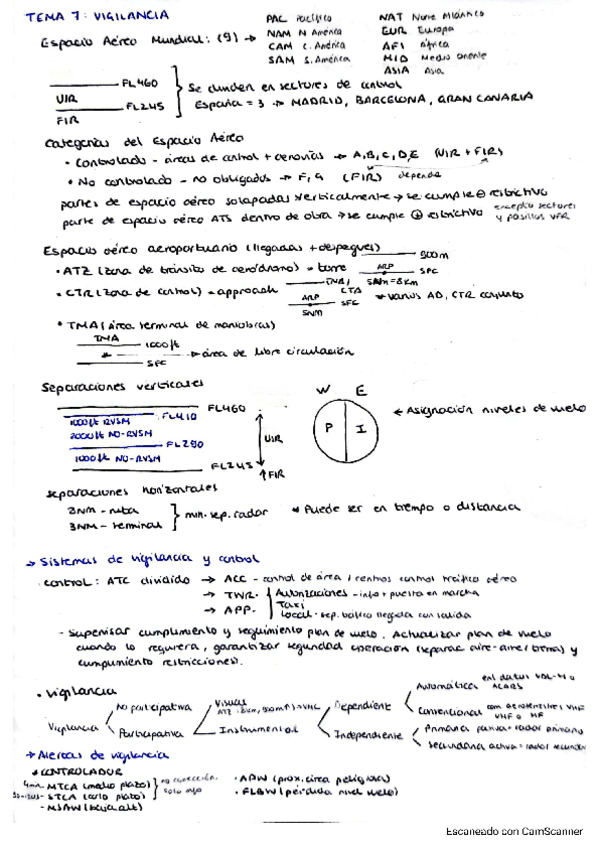 TEMA 7: VIGILANCIA
Espacio Aéreo Mundial: (9)
PAC Pacífico
NAM N América
CAM C. América
SAM S. América
NAT Norte Atlántico
EUR Europa
AFI África
MID Medio oriente
ASIA Asia
FL460
UIR
FL245
FIR
Se dividen en sectores de control
España = 3 → MADRID, BARCELONA, GRAN CANARIA
Categorías del Espacio Aéreo
• Controlado - áreas de control + aerovías → A,B,C,D,E (UIR + FIR)
• No controlado - no obligados → F, G (FIR) depende
partes de espacio aéreo solapadas verticalmente → se cumple ⊖ restrictivo
parte de espacio aéreo ATS dentro de otra → se cumple ⊕ restrictivo excepto sectores y pasillos VFR
Espacio aéreo aeroportuario (llegadas + despegues)
• ATZ (zona de tránsito de aeródromo) = torre
900m
ARP
SFC
5NM = 8km
• CTR (zona de control) = approach
TMA/
CTA
ARP
SFC
5NM
* varios AD, CTR conjunto
• TMA (área terminal de maniobras)
TMA
1000ft
→ área de libre circulación
SFC
Separaciones verticales
FL460
1000ft RVSM
FL410
2000ft NO-RVSM
FL290
1000ft NO-RVSM
FL245
UIR
↑FIR
W E
P I
← Asignación niveles de vuelo
separaciones horizontales
3NM - terminal
min. sep. radar
* Puede ser en tiempo o distancia
→ Sistemas de vigilancia y control
control: ATC dividido → ACC - control de área / centros control tráfico aéreo
→ TWR.
Autorizaciones - info + puesta en marcha
Taxi
Local - sep. tráfico llegada con salida
→ APP.
- Supervisar cumplimiento y seguimiento plan de vuelo. Actualizar plan de vuelo
cuando lo requiera, garantizar seguridad operación (separac aire-aire/tierra) y
cumplimiento restricciones.
• Vigilancia
Vigilancia
No participativa
Participativa
Visual
Instrumental
Dependiente
Independiente
Automática
ACARS
Convencional
VHF o HF
Primaria pasiva = radar primario
Secundaria activa = radar secundar
→ Alertas de vigilancia
* CONTROLADOR
MTCA (medio plazo)
STCA (corto plazo)
- MSAW (baja alt)
no corrección
solo info
• APW (prox. área peligrosa)
• FLBW (pérdida nivel vuelo)
Escaneado con CamScanner